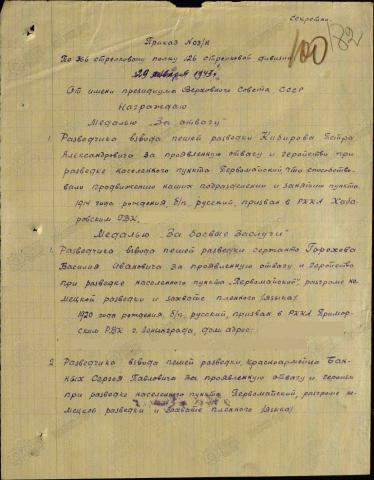 Секретно.
100
82
Приказ №03/н
По 366 стрелковому полку 126 стрелковой дивизии
29 января 1943 г.
От имени президиума Верховного Совета СССР
Награждаю
Медалью "За отвагу"
1. Разведчика взвода пешей разведки Кибирова Петра
Александровича за проявленную отвагу и геройство при
разведке населенного пункта Первомайский что способство-
вало продвижению наших подразделений и занятию пункта
1914 года рождения, б/п, русский, призван в РККА Хаба-
ровским ГВК.
Медалью "За боевые заслуги"
1. Разведчика взвода пешей разведки сержанта Горохова
Василия Ивановича за проявленную отвагу и геройство
при разведке населенного пункта "Первомайский", разгроме не-
мецкой разведки и захвате пленного (языка)
1920 года рождения, б/п, русский, призван в РККА Примор-
ским РВК г. дом. адрес:
2 Разведчика взвода пешей разведки, красноармейца Бан-
ных Сергея Павловича за проявленную отвагу и геройс
при разведке населенного пункта Первомайский, разгроме не-
мецкой разведки и захвате пленного (языка)